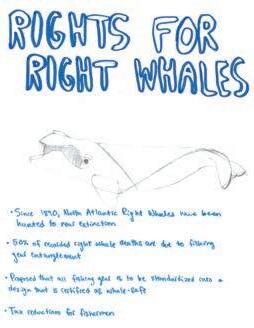 RIGHTS FOR
RIGHT WHALES
• Since 1890, North Atlantic Right Whales have been
hunted to near extinction
• 50% of recorded right whale deaths are due to fishing
gear entanglement
• Proposed that all fishing gear is to be standardized into a
design that is certified as whale-safe
• Tax reductions for fishermen